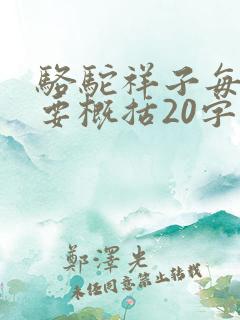 駱駝祥子每
要概括20字
鄭澤光
未经同意禁止转载